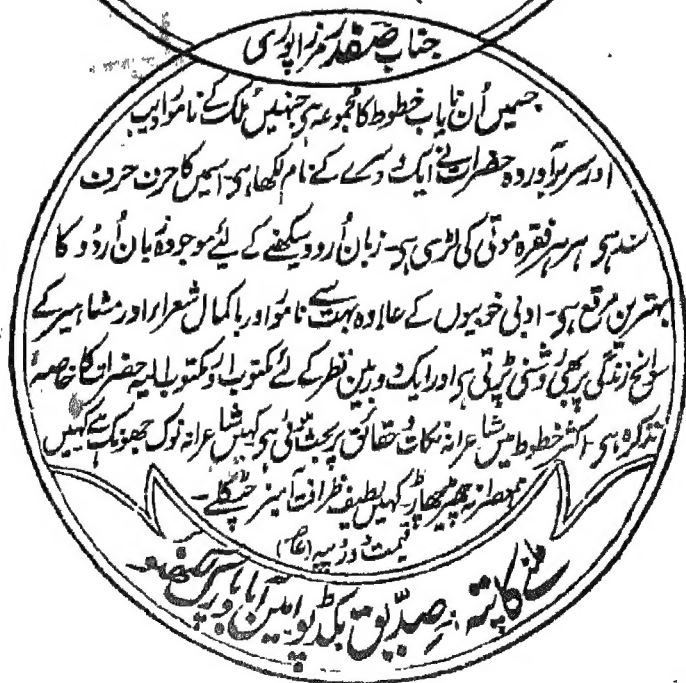 جناب صفدر مرزا پوری
جسمیں اُن نایاب خطوط کا مجموعہ ہی جنہیں مُلک کے نامور ادیب
اور سربرآوردہ حضرات نے ایک دوسرے کے نام لکھا ہی۔ اسمیں کا حرف حرف
سند ہی ہر ہر فقرہ موتی کی لڑسی ہی۔ زبان اُردو سیکھنے کے لیئے موجودہ زبان اُردُو کا
بہترین مرقع ہی۔ ادبی خوبیوں کے علاوہ بہت سے نامور اور باکمال شعراء اور مشاہیر کے
سوانح زندگی پر بھی روشنی پڑتی ہی اور ایک دوربین نظر کے لئے مکتوب اور مکتوب الیہ حضرات کا خاصہ
تذکرہ ہی۔ اکثر خطوط میں شاعرانہ نکات و حقائق پر بحث ہوئی ہی کہیں شاعرانہ نوک جھونک ہے کہیں
چھیڑ چھاڑ۔ کہیں لطیف ظرافت آمیز چٹکلے۔
قیمت دو روپیہ (عہ)
ملنے کا پتہ :۔ صدّیق بکڈپو امین آباد پارک لکھنؤ